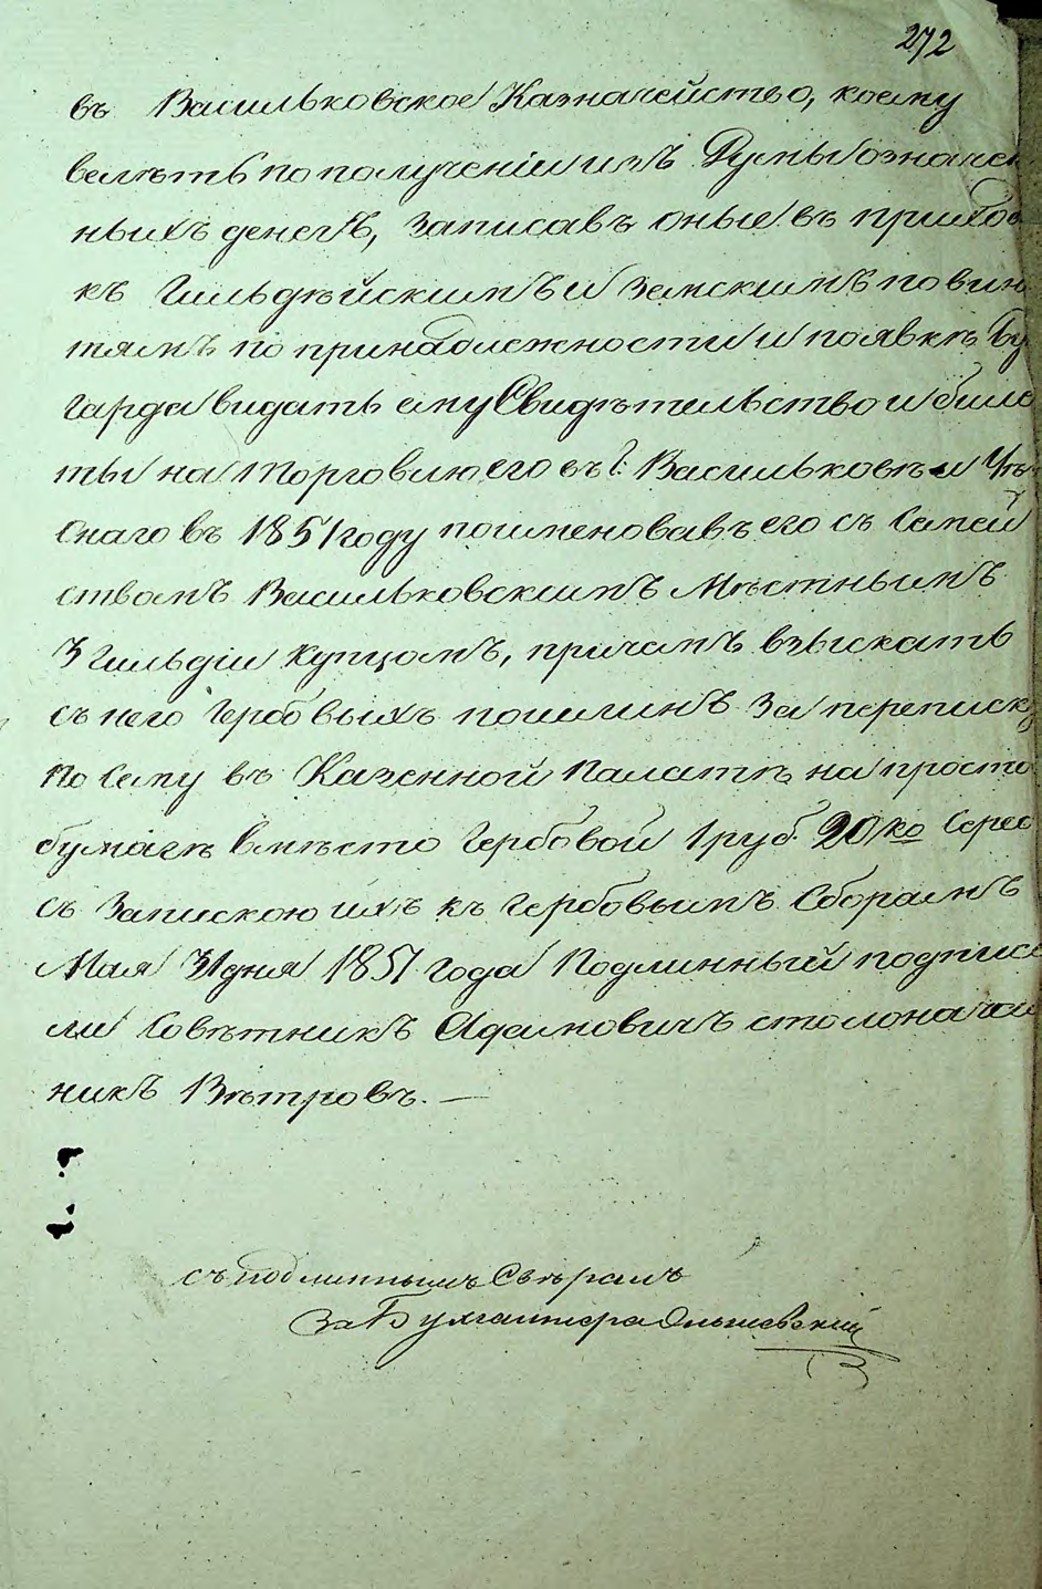 272
въ Васильковское Казначейство, коему
велѣть по полученіи изъ Думы означен
ныхъ денегъ, записавъ оные въ приход
къ Гильдѣйскимъ и Земскимъ повин
тямъ по принадлежности и появкѣ Бу
гарда видать ему Свидѣтельство и биле
ты на торговлю его въ г: Васильковѣ и Уѣ
снаго въ 1851 году поименовавъ его съ Семей
ствомъ Васильковскимъ Мѣстнымъ
3 Гильдіи купцомъ, причемъ взыскать
съ него Гербовыхъ пошлинъ за переписк
по Сему въ Казенной Палатѣ на просто
бумагѣ вмѣсто Гербовой 1 руб. 20 ко Сереб
съ Запискою ихъ къ гербовымъ Сборамъ
Мая 31 дня 1851 года Подлинный подписа
ли Совѣтникъ Адамовичъ столоначал
никъ Вѣтровъ. —
съ подлиннымъ Свѣрялъ
За Бухгалтера Ольшевскій